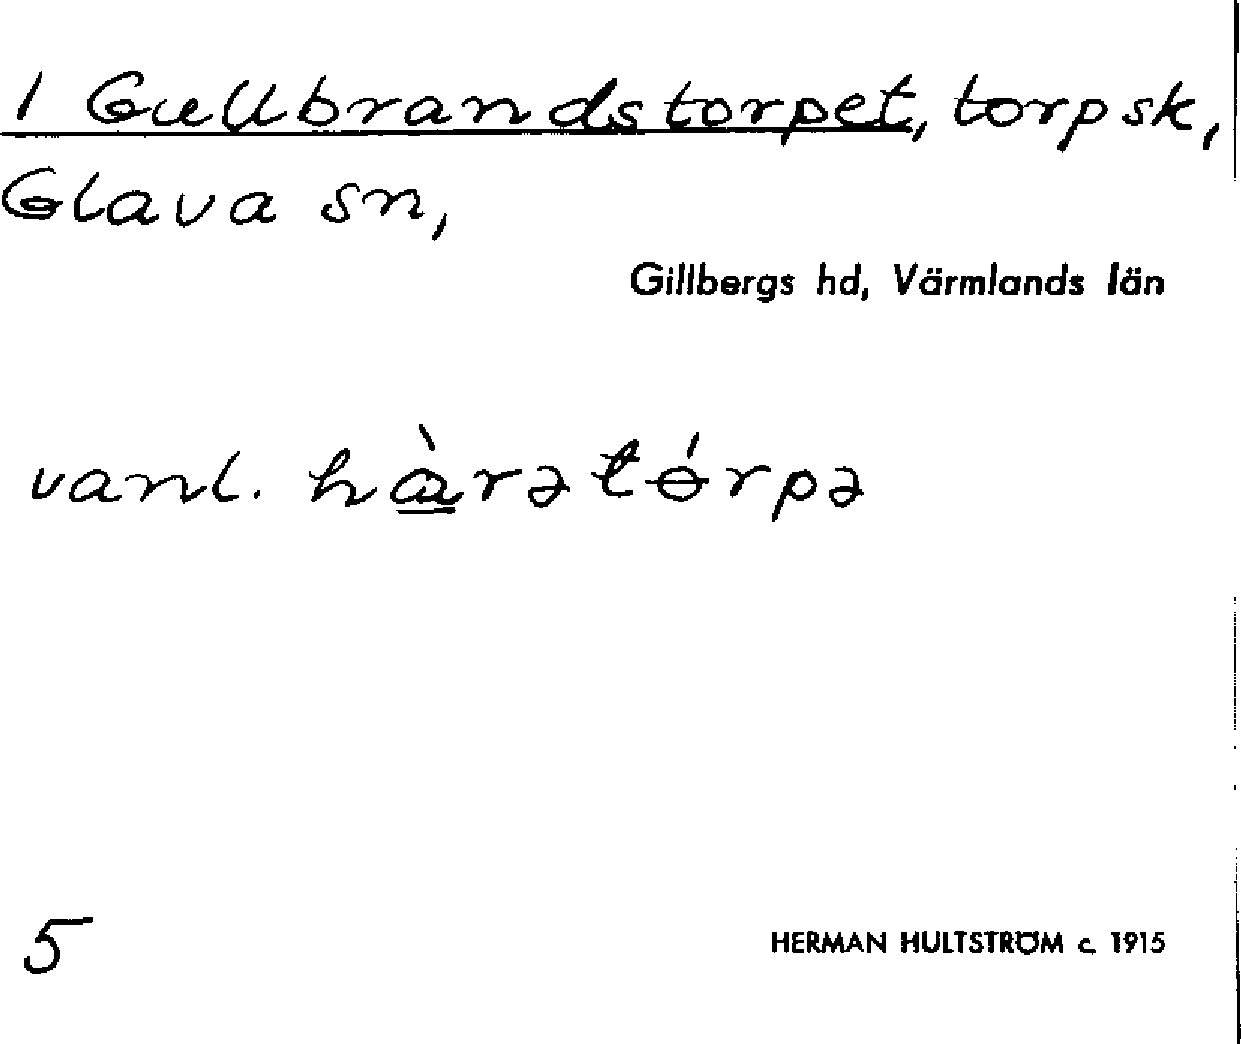 1 Gullbrandstorpet, torp sk,
Glava sn,
Gillbergs hd, Värmlands län
vanl. hàrətɵ́rpə
5
HERMAN HULTSTRÖM c. 1915